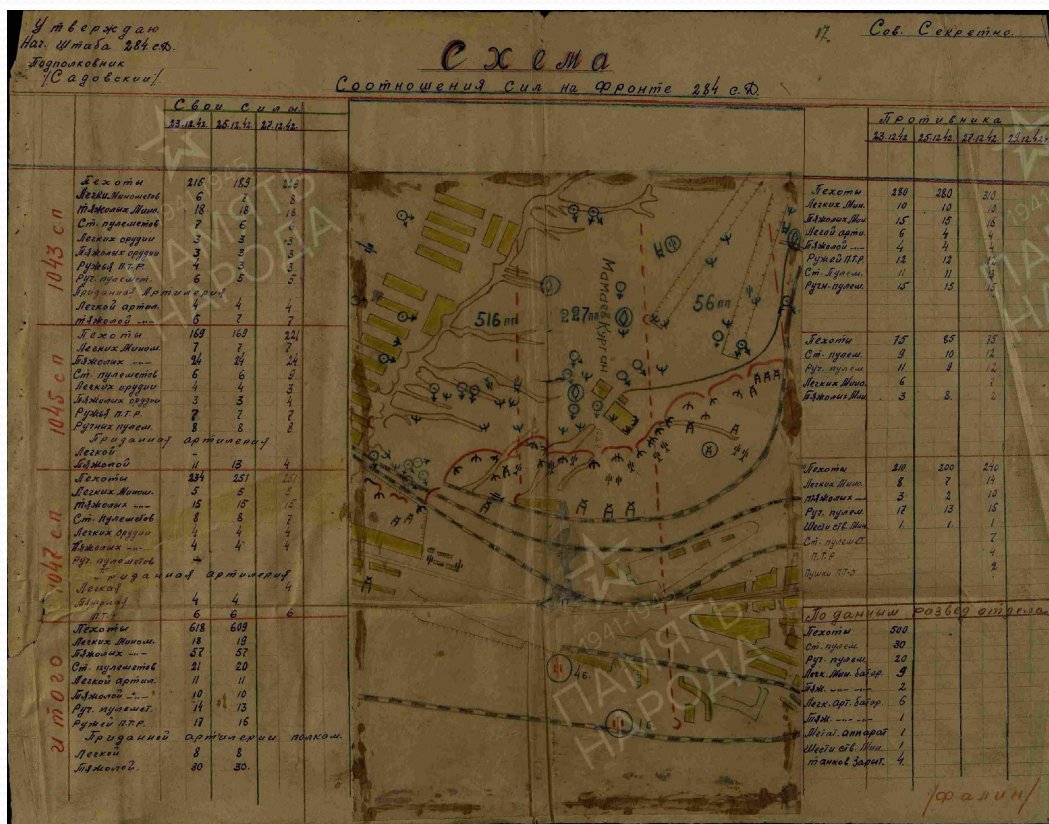 Утверждаю
Нач. Штаба 284 с.Д.
Подполковник
/Садовский/
17.
Сов. Секретно.
Схема
Соотношения сил на фронте 284 с.Д.
Свои силы
23.12.42. 25.12.42 27.12.42.
1043 сп
Пехоты 215 189
Легких Минометов 6 7 8
Тяжолых Мино. 18 18 18
Ст. пулеметов 7 6 6
Легких орудий 3 3 3
Тяжолых орудий 3 3 3
Ружья П.Т.Р. 4 3 3
Руч. пулемет. 6 5 5
Приданная Артилерия
Легкой артил. 4 4 4
Тяжолой -"- 6 7 7
1045 сп
Пехоты 169 169 221
Легких Мином. 7 7 7
Тяжолых -"- 24 24 24
Ст. пулеметов 6 6 9
Легких орудий 4 4 3
Тяжолых орудий 3 3 4
Ружья П.Т.Р. 7 7 7
Ручных пулем. 8 8 8
Приданная артилерия
Легкой -
Тяжолой 11 13 4
1047 сп
Пехоты 234 251
Легких Мином. 5 5 5
Тяжолых -"- 15 15 15
Ст. Пулеметов 8 8 7
Легких Орудий 4 4 4
Тяжолых -"- 4 4 4
Руч. пулеметов -
Приданная артилерия
Легкая 4
Тяжолая 4 4
П.Т.Р. 6 6 6
итого
Пехоты 618 609
Легких Мином. 18 19
Тяжолых -"- 57 57
Ст. пулеметов 21 20
Легкой артил. 11 11
Тяжолой -"- 10 10
Руч. пулемет. 14 13
Ружей П.Т.Р. 17 16
Приданной артилерии полкам.
Легкой 8 8
Тяжолой. 30 30.
516 пп
227 пп
56 пп
Мамаев Курган
4 б.
1 б.
Противника
23.12.42 25.12.42 27.12.42 29.12.42
Пехоты 280 280 310
Легких Мин. 10 10 10
Тяжолых Мин 15 15 16
Легкой арти. 6 4 4
Тяжолой -"- 4 4 4
Ружей ПТР 12 12 12
Ст. Пулем. 11 11
Ручн. пулем. 15 15 15
Пехоты 75 85 75
Ст. пулем. 9 10 12
Руч. пулем 11 9 12
Легких Мино. 6
Тяжолых Мин 3 8.
Пехоты 210 200 240
Легких Мино. 8 7 14
Тяжолых -"- 3 2 10
Руч. пулем. 17 13 15
Шести ств. Мин 1. 1. 1
Ст. пулемет. 7
П.Т.Р 4
Пушки П.Т.О 2
По даным развед отдела
Пехоты 500
Ст. пулем. 30
Руч. пулем. 20
Легк. Мин. батар. 9
Тяж. -"- 2
Легк. арт. батар. 6
Тяж. -"- 1
Метат. аппарат 1
Шести ств. Мин 1
танков Зарыт. 4.
/Фалин/
ПАМЯТЬ
НАРОДА
1941-1945